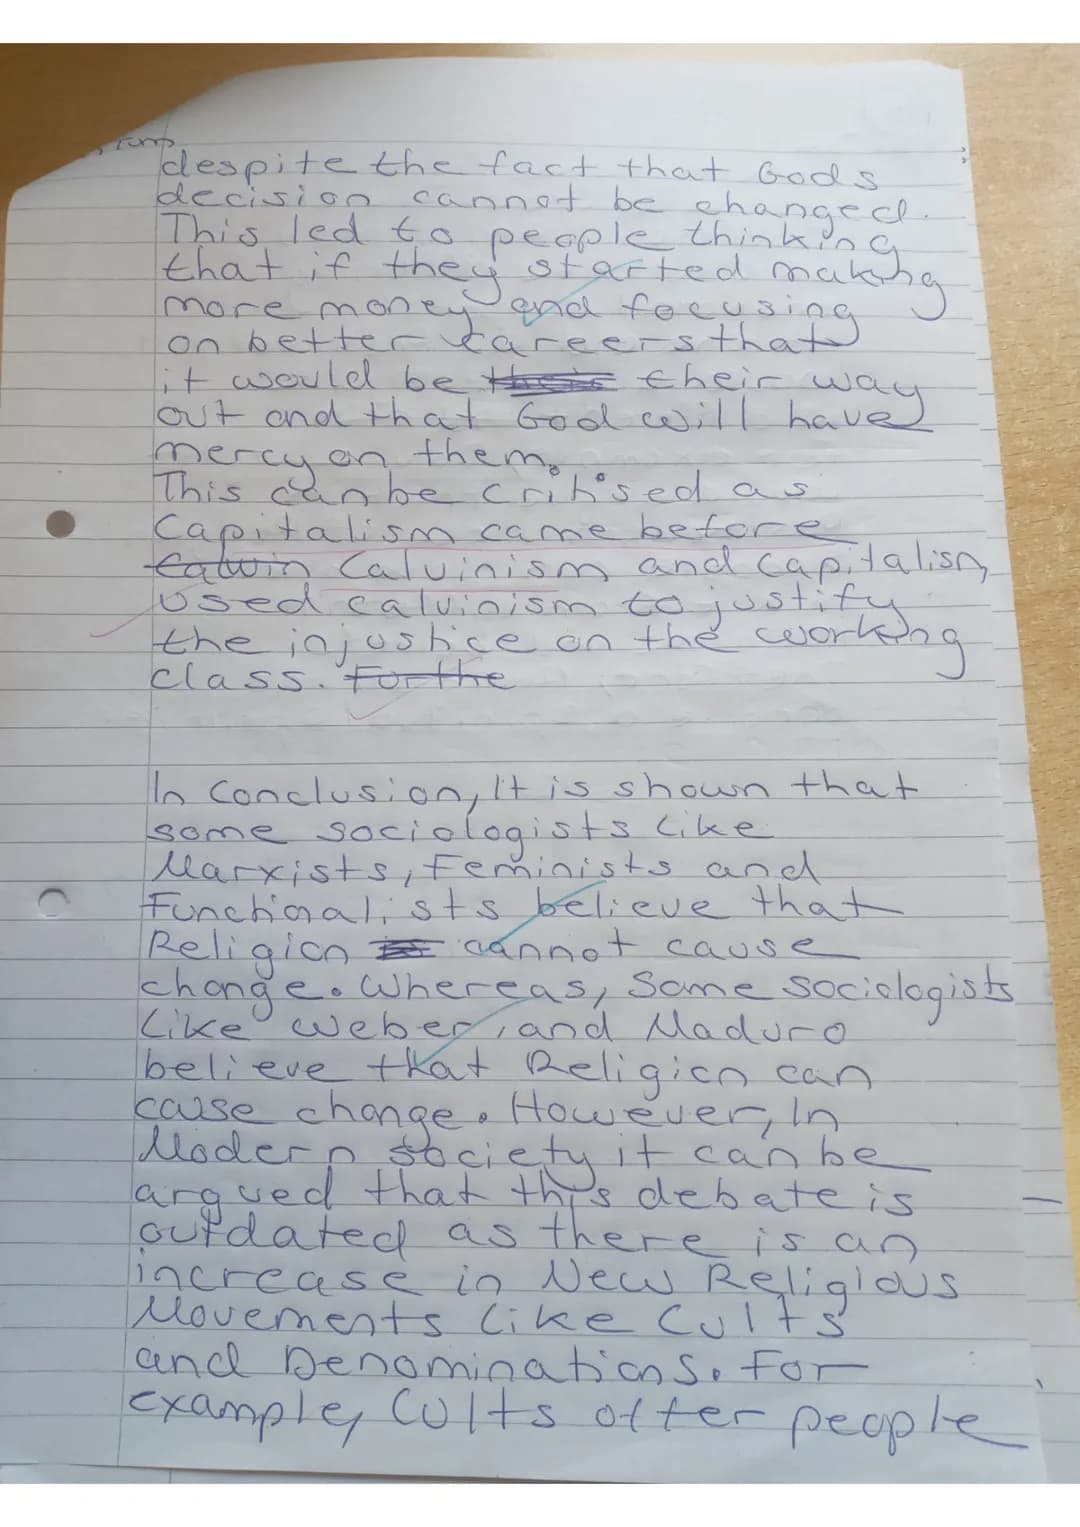 despite the fact that Gods
decision cannot be changed.
This led to people thinking
that if they started making
more money and focusing
on better careers that
it would be their way
out and that God will have
mercy on them.
This can be critised as
Capitalism came before
Calwin Calvinism and capitalism
used calvinism to justify
the injustice on the working
class. For the
In Conclusion, It is shown that
some sociologists like
Marxists, Feminists and
Functionalists believe that
Religion cannot cause
change. Whereas, Some sociologists
Like Weber, and Maduro
believe that Religion can
cause change. However, In
Modern society it can be
argued that this debate is
outdated as there is an
increase in New Religious
Movements like Cults
and Denominations. For
example, Cults offer people